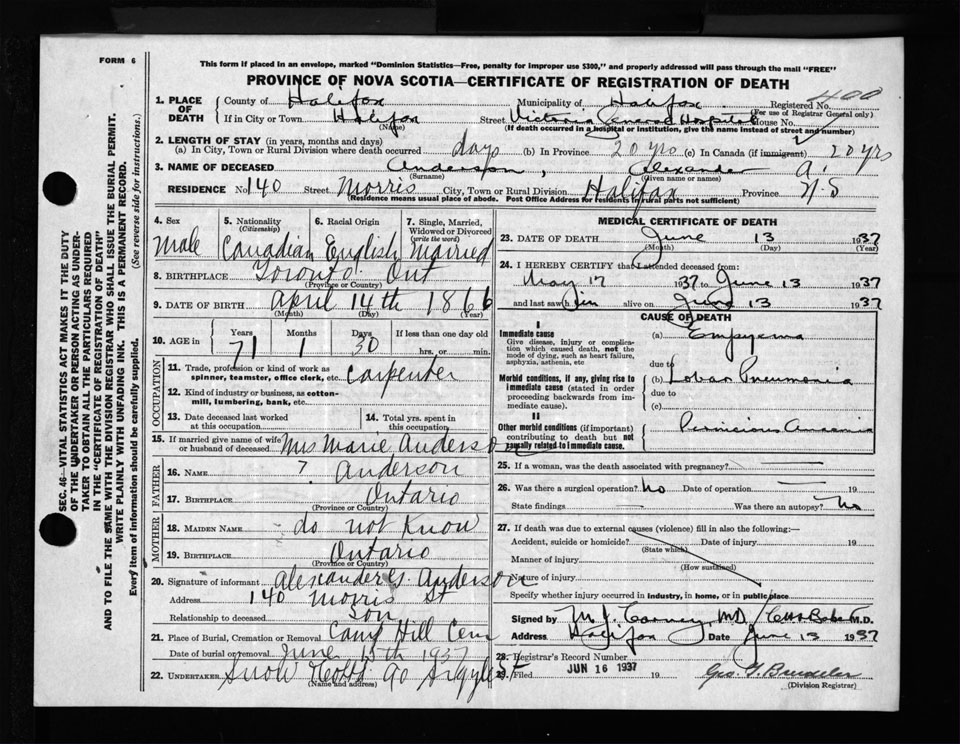 FORM 6
This form if placed in an envelope, marked "Dominion Statistics—Free, penalty for improper use $300," and properly addressed will pass through the mail "FREE"
PROVINCE OF NOVA SCOTIA—CERTIFICATE OF REGISTRATION OF DEATH
1. PLACE OF DEATH County of Halifax Municipality of Halifax Registered No. 400
(For use of Registrar General only)
If in City or Town Halifax Street Victoria General Hospital House No.
(Name) (If death occurred in a hospital or institution, give the name instead of street and number)
2. LENGTH OF STAY (in years, months and days)
(a) In City, Town or Rural Division where death occurred days (b) In Province 20 yrs (c) In Canada (if immigrant) 20 yrs
3. NAME OF DECEASED Anderson, Alexander
(Surname) (Given name or names)
RESIDENCE No. 140 Street Morris City, Town or Rural Division Halifax Province N.S
(Residence means usual place of abode. Post Office Address for residents in rural parts not sufficient)
4. Sex Male
5. Nationality (Citizenship) Canadian
6. Racial Origin English
7. Single, Married, Widowed or Divorced (write the word) Married
8. BIRTHPLACE Toronto Ont
(Province or Country)
9. DATE OF BIRTH April 14th 1866
(Month) (Day) (Year)
10. AGE in Years 71 Months 1 Days 30 If less than one day old hrs. or min.
OCCUPATION
11. Trade, profession or kind of work as spinner, teamster, office clerk, etc. Carpenter
12. Kind of industry or business, as cotton-mill, lumbering, bank, etc.
13. Date deceased last worked at this occupation
14. Total yrs. spent in this occupation
15. If married give name of wife or husband of deceased Mrs Marie Anderson
FATHER
16. NAME ? Anderson
17. BIRTHPLACE Ontario
(Province or Country)
MOTHER
18. MAIDEN NAME do not know
19. BIRTHPLACE Ontario
(Province or Country)
20. Signature of informant Alexander G. Anderson
Address 140 Morris St
Relationship to deceased Son
21. Place of Burial, Cremation or Removal Camp Hill Cem
Date of burial or removal June 15th 1937
22. UNDERTAKER Snow Co Argyle St
(Name and address)
MEDICAL CERTIFICATE OF DEATH
23. DATE OF DEATH June 13 1937
(Month) (Day)
24. I HEREBY CERTIFY that I attended deceased from:
May 17 1937 to June 13 1937
and last saw him alive on June 13 1937
CAUSE OF DEATH
I
Immediate cause
Give disease, injury or complication which caused death, not the mode of dying, such as heart failure, asphyxia, asthenia, etc
(a) Empyema
due to
Morbid conditions, if any, giving rise to immediate cause (stated in order proceeding backwards from immediate cause).
(b) Lobar Pneumonia
due to
(c)
II
Other morbid conditions (if important) contributing to death but not causally related to immediate cause.
Pernicious Anaemia
25. If a woman, was the death associated with pregnancy?
26. Was there a surgical operation? No Date of operation 19
State findings Was there an autopsy? No
27. If death was due to external causes (violence) fill in also the following:—
Accident, suicide or homicide? Date of injury 19
(State which)
Manner of injury
(How sustained)
Nature of injury
Specify whether injury occurred in industry, in home, or in public place
Signed by M.D. M.D.
Address Halifax Date June 13 1937
28. Registrar's Record Number
29. Filed JUN 16 1937 19
(Division Registrar)
SEC. 46—VITAL STATISTICS ACT MAKES IT THE DUTY
OF THE UNDERTAKER OR PERSON ACTING AS UNDER-
TAKER TO OBTAIN ALL THE PARTICULARS REQUIRED
IN THE "CERTIFICATE OF REGISTRATION OF DEATH"
AND TO FILE THE SAME WITH THE DIVISION REGISTRAR WHO SHALL ISSUE THE BURIAL PERMIT.
WRITE PLAINLY WITH UNFADING INK. THIS IS A PERMANENT RECORD.
Every item of information should be carefully supplied. (See reverse side for instructions.)